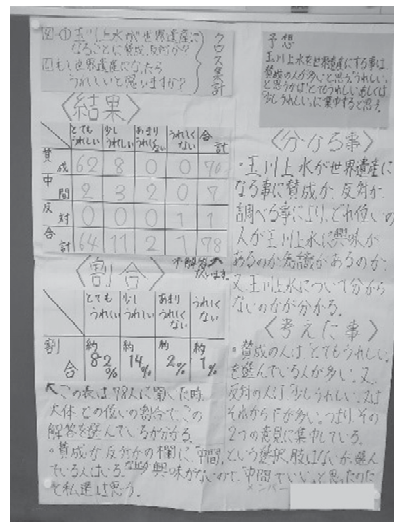 図-① 玉川上水が世界遺産に
なることに賛成、反対か?
図 もし世界遺産になったら
うれしいと思いますか?
クロス集計
予想
玉川上水を世界遺産にする事は
賛成の人が多いと思う。うれしい
と思うかは「とてもうれしい」もしくは
「少しうれしい」に集中すると思う。
〈結果〉
とても うれしい 少し うれしい あまり うれしくない うれしくない 合計
賛成 62 8 0 0 70
中間 2 3 2 0 7
反対 0 0 0 1 1
合計 64 11 2 1 78
〈割合〉
とても うれしい 少し うれしい あまり うれしくない うれしくない
割合 約82% 約14% 約2% 約1%
この表は78人に聞いた時、
大体どの位の割合でこの
解答を選んでいるか分かる。
・賛成か反対かの欄に、「中間」という選択肢はないが、選ん
でいる人はいる。興味がないので、「中間でいい」と思ったのだ
と私達は思う。
〈分かる事〉
・玉川上水が世界遺産に
なる事に賛成か、反対か
調べる事により、どれ位の
人が玉川上水に興味が
あるのか知識があるのか、
又玉川上水について分から
ないのかが分かる。
〈考えた事〉
・賛成の人は「とてもうれしい」
を選んでいる人が多い。又、
反対の人は「少しうれしい」又は
それからだが多い。つまり、その
2つの意見に集中している。
メンバー